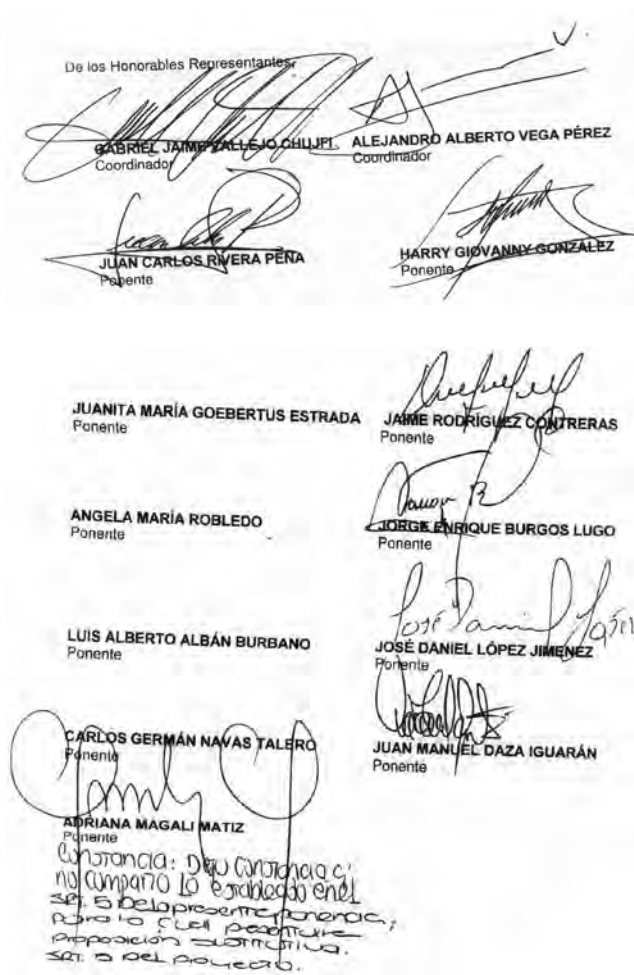 De los Honorables Representantes,
GABRIEL JAIME VALLEJO CHUJFI
Coordinador
ALEJANDRO ALBERTO VEGA PÉREZ
Coordinador
JUAN CARLOS RIVERA PEÑA
Ponente
HARRY GIOVANNY GONZÁLEZ
Ponente
JUANITA MARÍA GOEBERTUS ESTRADA
Ponente
JAIME RODRÍGUEZ CONTRERAS
Ponente
ANGELA MARÍA ROBLEDO
Ponente
JORGE ENRIQUE BURGOS LUGO
Ponente
LUIS ALBERTO ALBÁN BURBANO
Ponente
José Daniel López
JOSÉ DANIEL LÓPEZ JIMENEZ
Ponente
CARLOS GERMÁN NAVAS TALERO
Ponente
JUAN MANUEL DAZA IGUARÁN
Ponente
ADRIANA MAGALI MATIZ
Ponente
Constancia: Dejo constancia q'
no comparto lo establecido en el
art. 5 de la presente ponencia,
para lo cual
proposición sustitutiva.
art. 5 del proyecto.